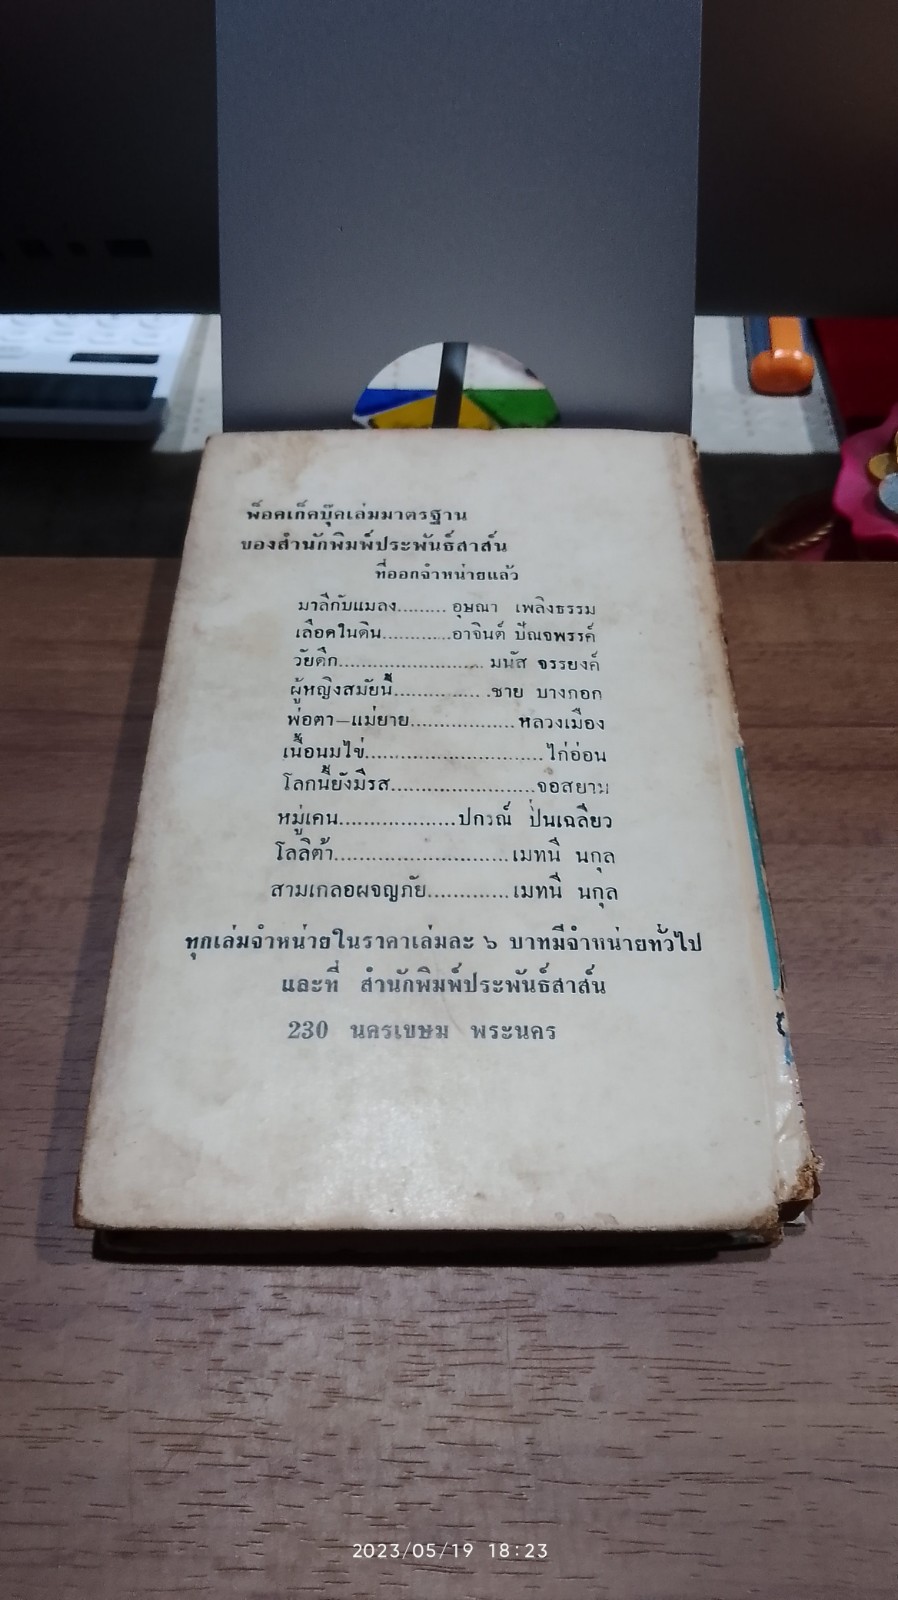 พ็อคเก็คบุ๊คเล่มมาตรฐาน
ของสำนักพิมพ์ประพันธ์สาส์น
ที่ออกจำหน่ายแล้ว
มาลีกับแมลง......... อุษณา เพลิงธรรม
เลือดในดิน............อาจินต์ ปัญจพรรค์
วัยดึก......................... มนัส จรรยงค์
ผู้หญิงสมัยนี้................ชาย บางกอก
พ่อตา—แม่ยาย..................หลวงเมือง
เนื้อนมไข่...............................ไก่อ่อน
โลกนี้ยังมีรส.........................จอสยาม
หมู่เคน....................ปกรณ์ ปิ่นเฉลียว
โลลิต้า..............................เมทนี นกุล
สามเกลอผจญภัย..............เมทนี นกุล
ทุกเล่มจำหน่ายในราคาเล่มละ ๖ บาทมีจำหน่ายทั่วไป
และที่ สำนักพิมพ์ประพันธ์สาส์น
230 นครเขษม พระนคร
2023/05/19 18:23